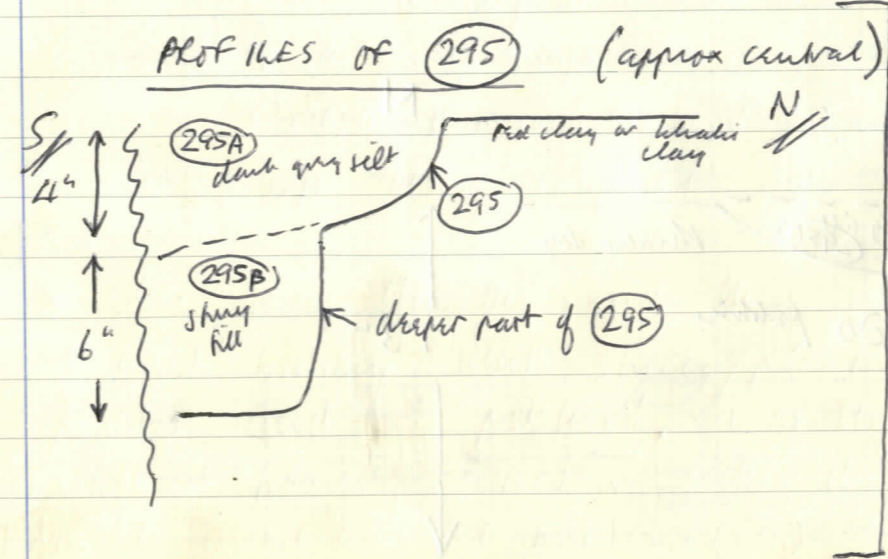 PROFILES OF 295 (approx central)
S
N
4"
295A
dark grey silt
red clay or
clay
295
295B
stony
fill
6"
deeper part of 295